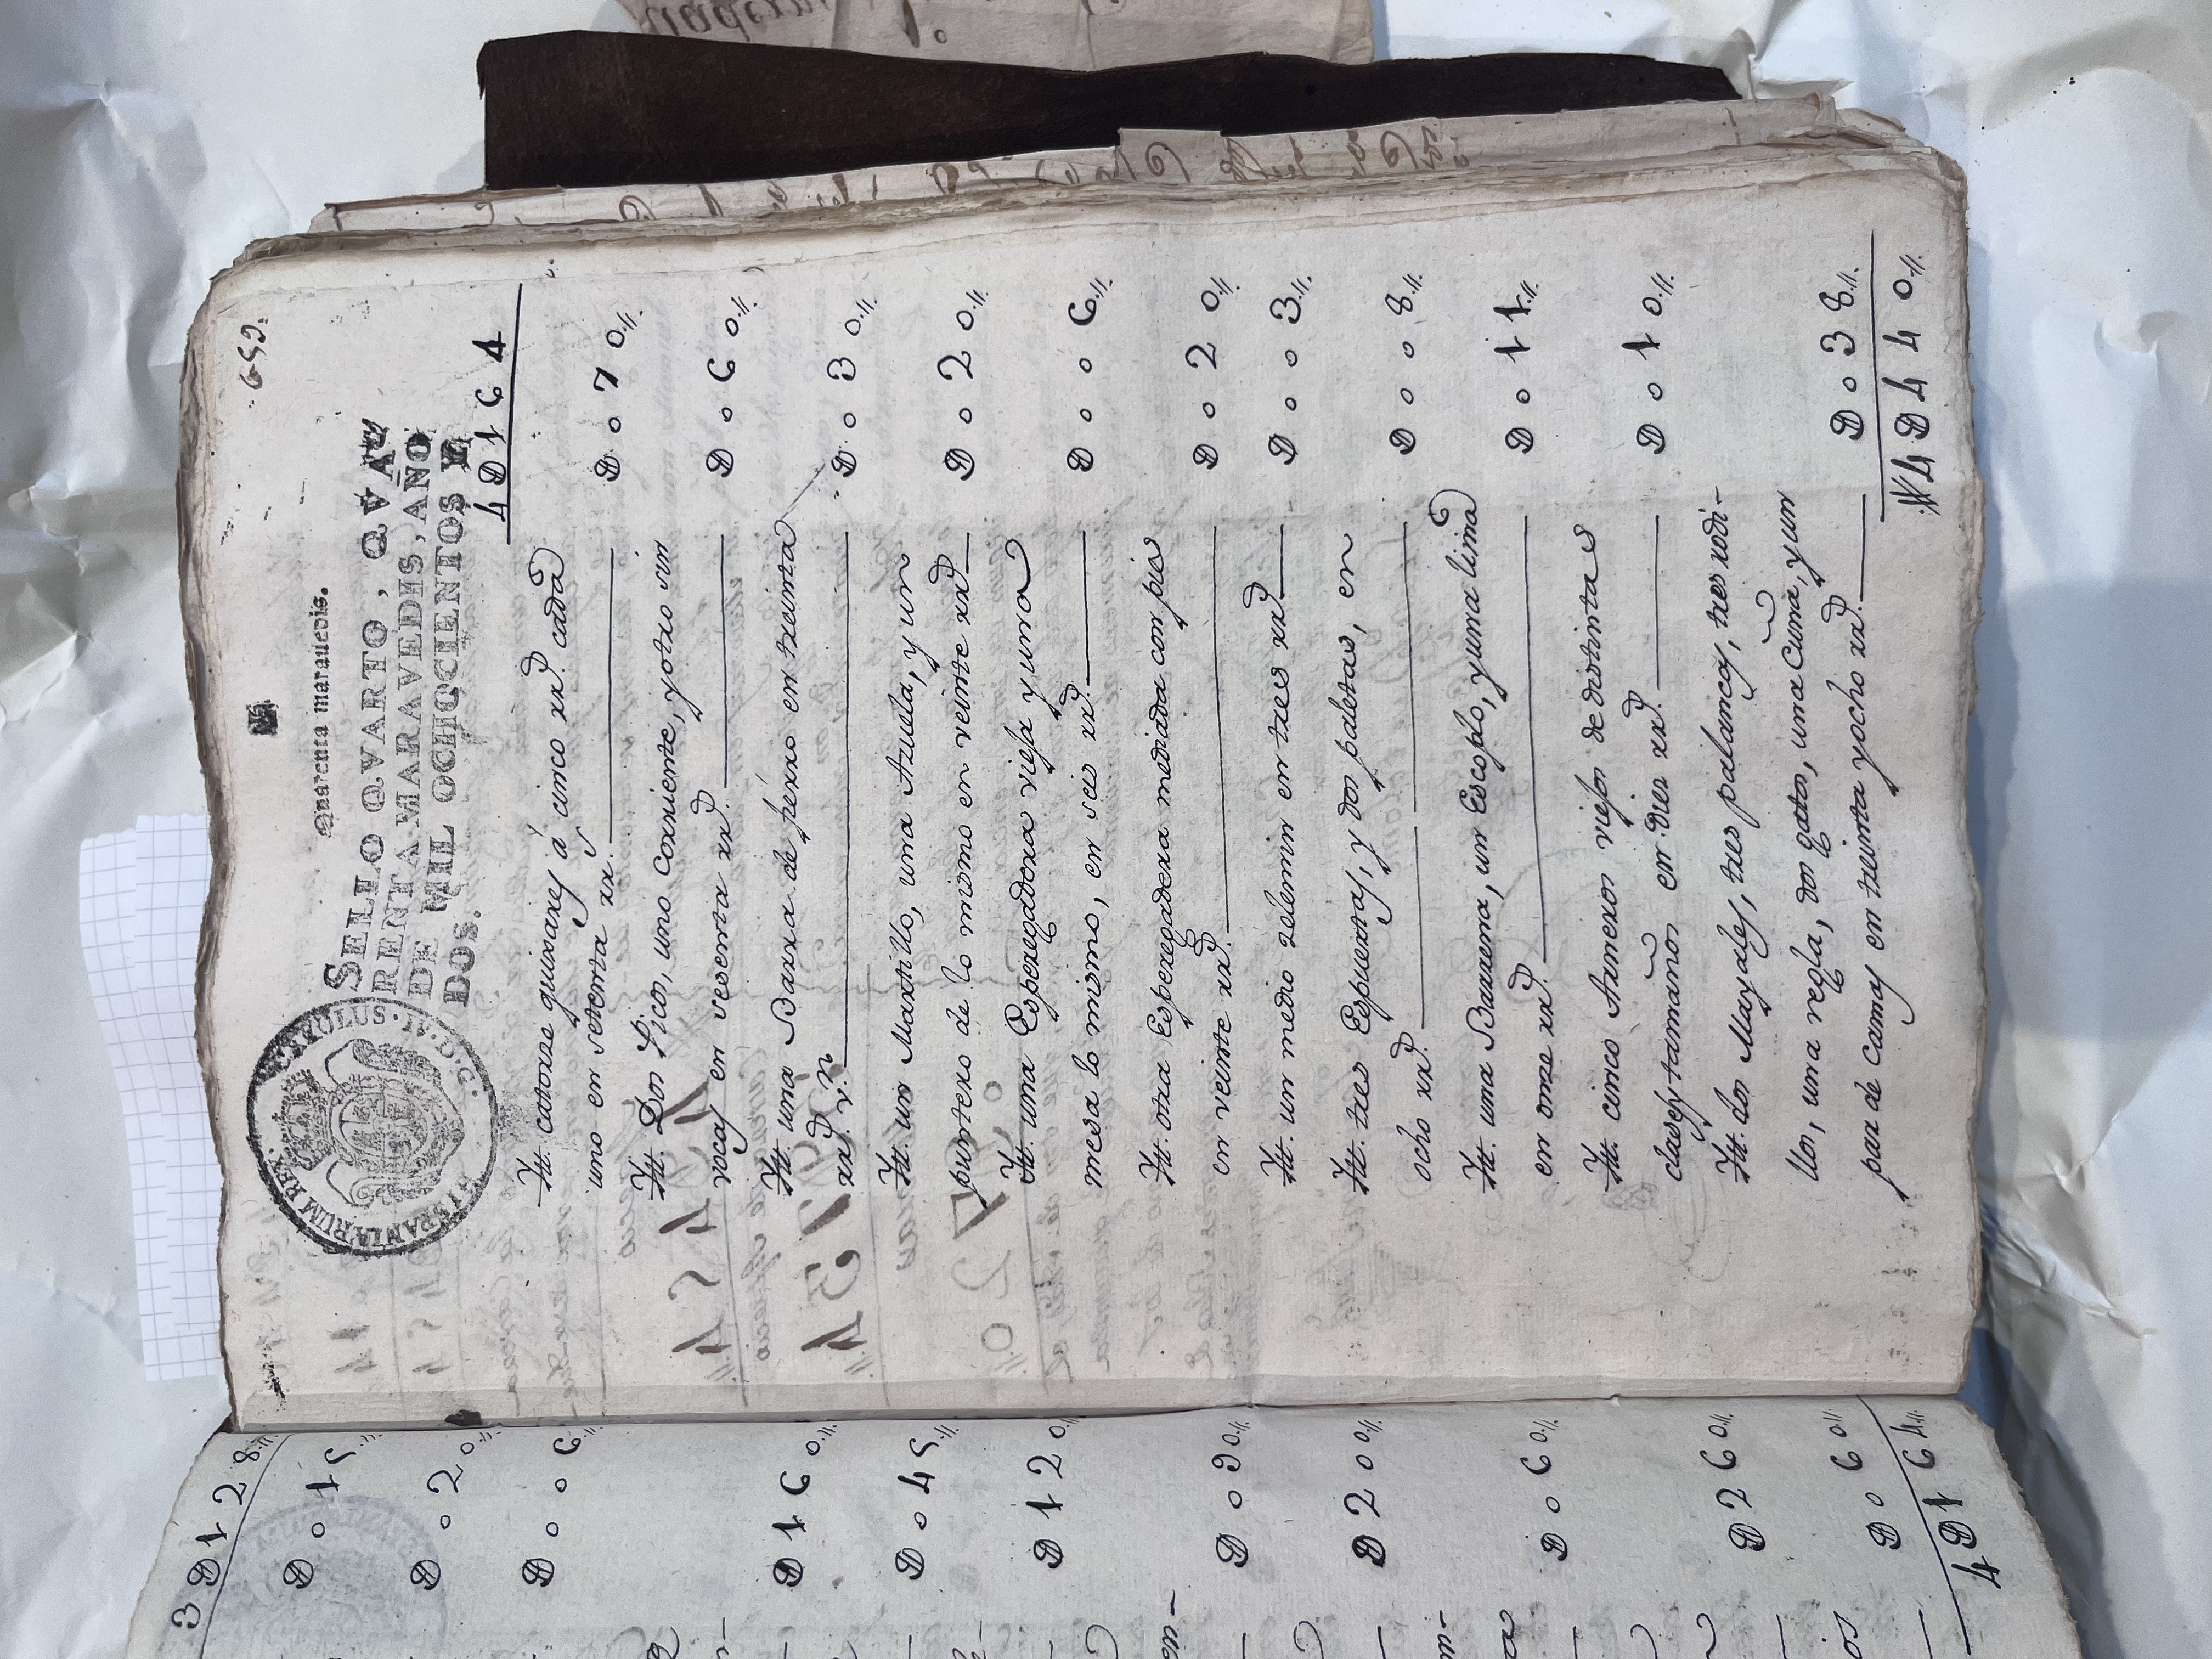 659.
Quarenta marauedis.
SELLO QVARTO, QVA
RENTA MARAVEDIS, AÑO
DE MIL OCHOCIENTOS Y
DOS.
CAROLUS. IV. D. G.
HISPANIARUM REX.
4 D 1 6 4
Ytt. catorze quixaxes á cinco rr.ˢ cada
uno en setenta rr.ˢ D o 7 0.//.
Ytt. Dos Picos, uno corriente, y otro sin
vocas en sesenta rr.ˢ D o 6 0.//.
Ytt. una Barra de fierro en treinta
rr.ˢ v.ⁿ D o 3 0.//.
Ytt. un Martillo, una Azuela, y un
puntero de lo mismo en veinte rr.ˢ D o 2 0.//.
Ytt. una Esperegadora viesa y una
mesa lo mismo, en seis rr.ˢ D o o 6.//.
Ytt. otra Esperegadera mediada con pies
en veinte rr.ˢ D o 2 0.//.
Ytt. un medio zelemin en tres rr.ˢ D o o 3.//.
Ytt. tres Espuertas, y dos paletas, en
ocho rr.ˢ D o o 8.//.
Ytt. una Barrena, un Escoplo, y una lima
en onze rr.ˢ D o 1 1.//.
Ytt. cinco Arneros viejos de distintas
clases y tamaños en Diez rr.ˢ D o 1 0.//.
Ytt. dos Mayales, tres palancas, tres rodi-
llos, una regla, dos gatos, una Cuna, y un
par de Camas en treinta y ocho rr.ˢ D o 3 8.//.
4 D 4 4 0.//.
3 D 1 2 8.//.
D o 1 5.//.
D o 2 0.//.
D o o 6.//.
D 1 6 0.//.
D o 4 5.//.
D 1 2 0.//.
D o 9 0.//.
D 2 0 0.//.
D o 6 0.//.
D 2 6 0.//.
D o 6 0.//.
4 D 1 6 4.//.